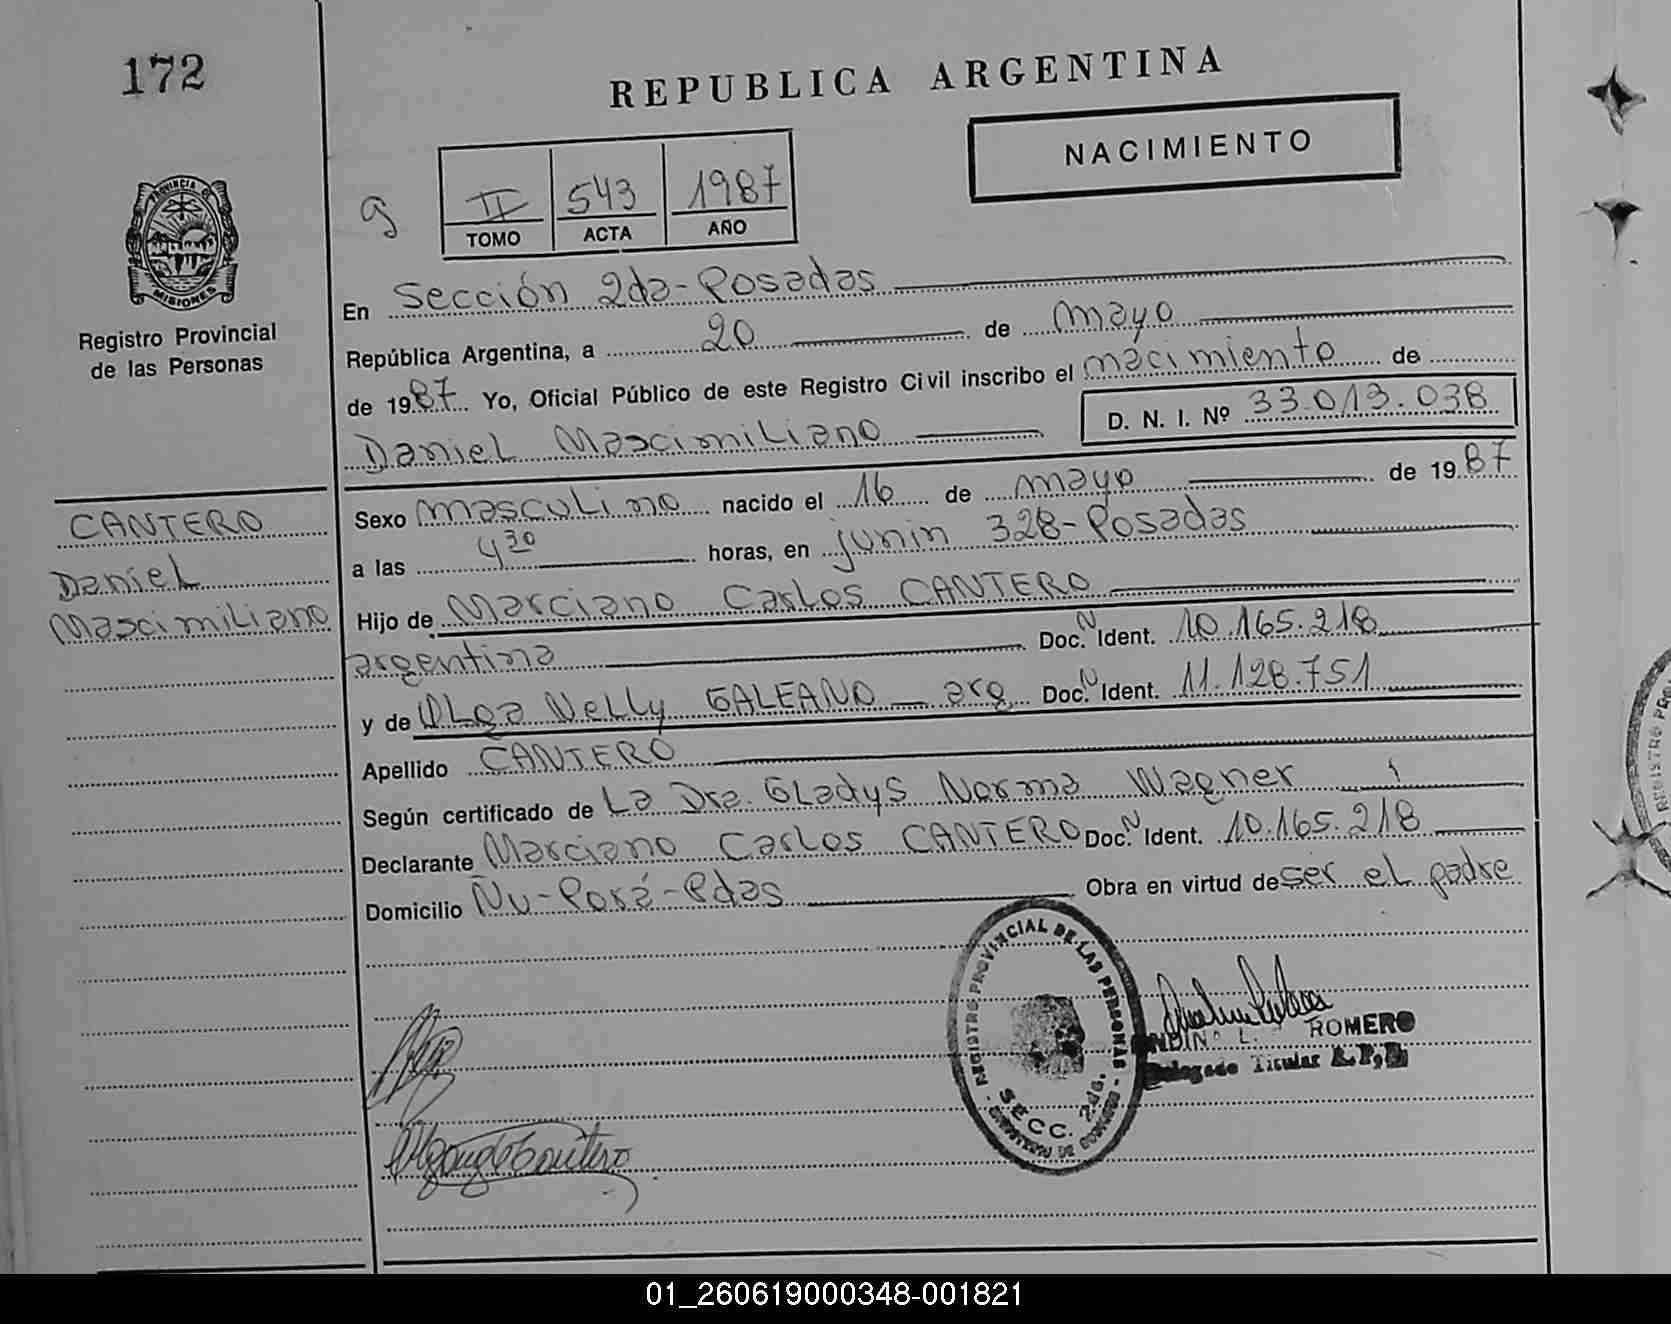 172
REPUBLICA ARGENTINA
NACIMIENTO
g
II 543 1987
TOMO ACTA AÑO
PROVINCIA DE
MISIONES
Registro Provincial
de las Personas
En Sección 2da-Posadas
República Argentina, a 20 de mayo
de 1987. Yo, Oficial Público de este Registro Civil inscribo el nacimiento de
Daniel Mascimiliano D. N. I. Nº 33.013.038
Sexo masculino nacido el 16 de mayo de 1987
a las 4 30 horas, en junin 328-Posadas
Hijo de Marciano Carlos CANTERO
argentina Doc. N Ident. 10.165.218
y de Olga Nelly GALEANO - arg Doc. N Ident. 11.128.751
Apellido CANTERO
Según certificado de La Dra. Gladys Norma Wagner
Declarante Marciano Carlos CANTERO Doc. N Ident. 10.165.218
Domicilio Ñu-Porá-Pdas Obra en virtud de ser el padre
CANTERO
Daniel
Mascimiliano
REGISTRO PROVINCIAL DE LAS PERSONAS
SECC. 2da.
L. ROMERO
Delegado Titular R.P.P.
REGISTRO PRO
01_260619000348-001821